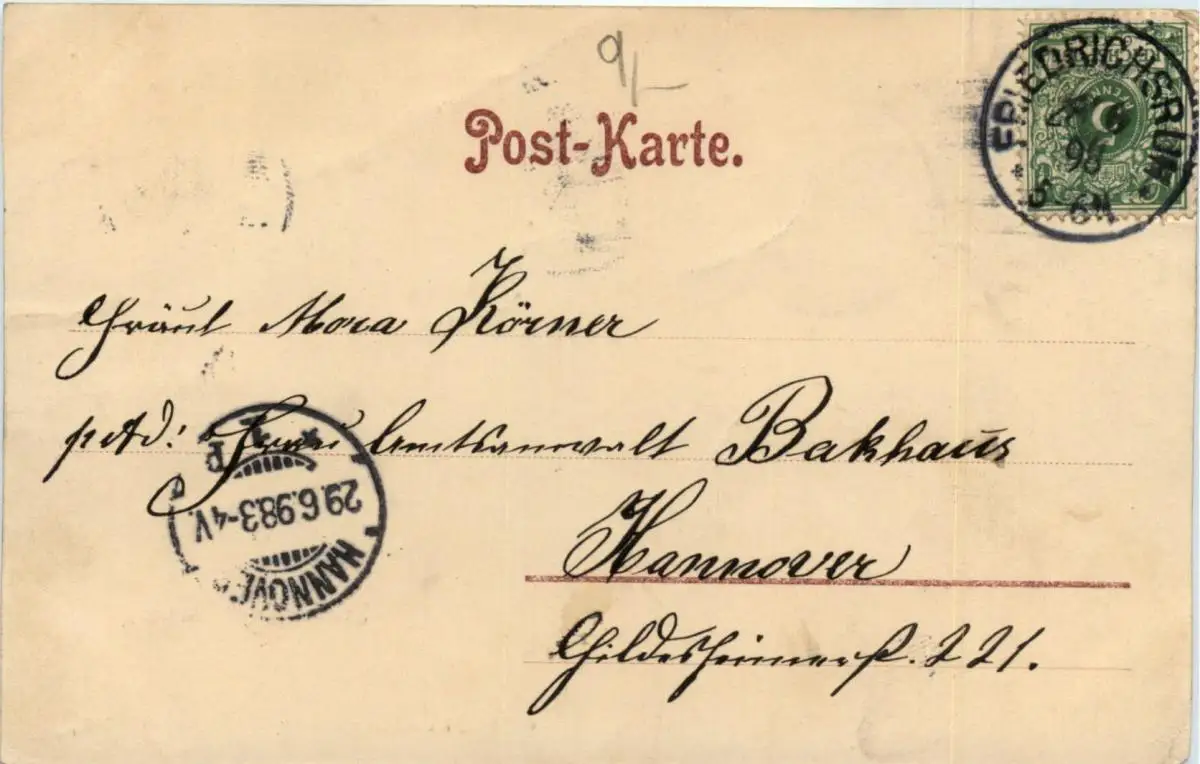 9/-
Post-Karte.
FRIEDRICHSRUH
98
5-6N
PFENNIG
Fräul Mora Körner
p. Ad: Frau Amtsanwalt Bakhaus
Hannover
Hildesheimerst. 221.
HANNOVER
29.6.98.3-4V.